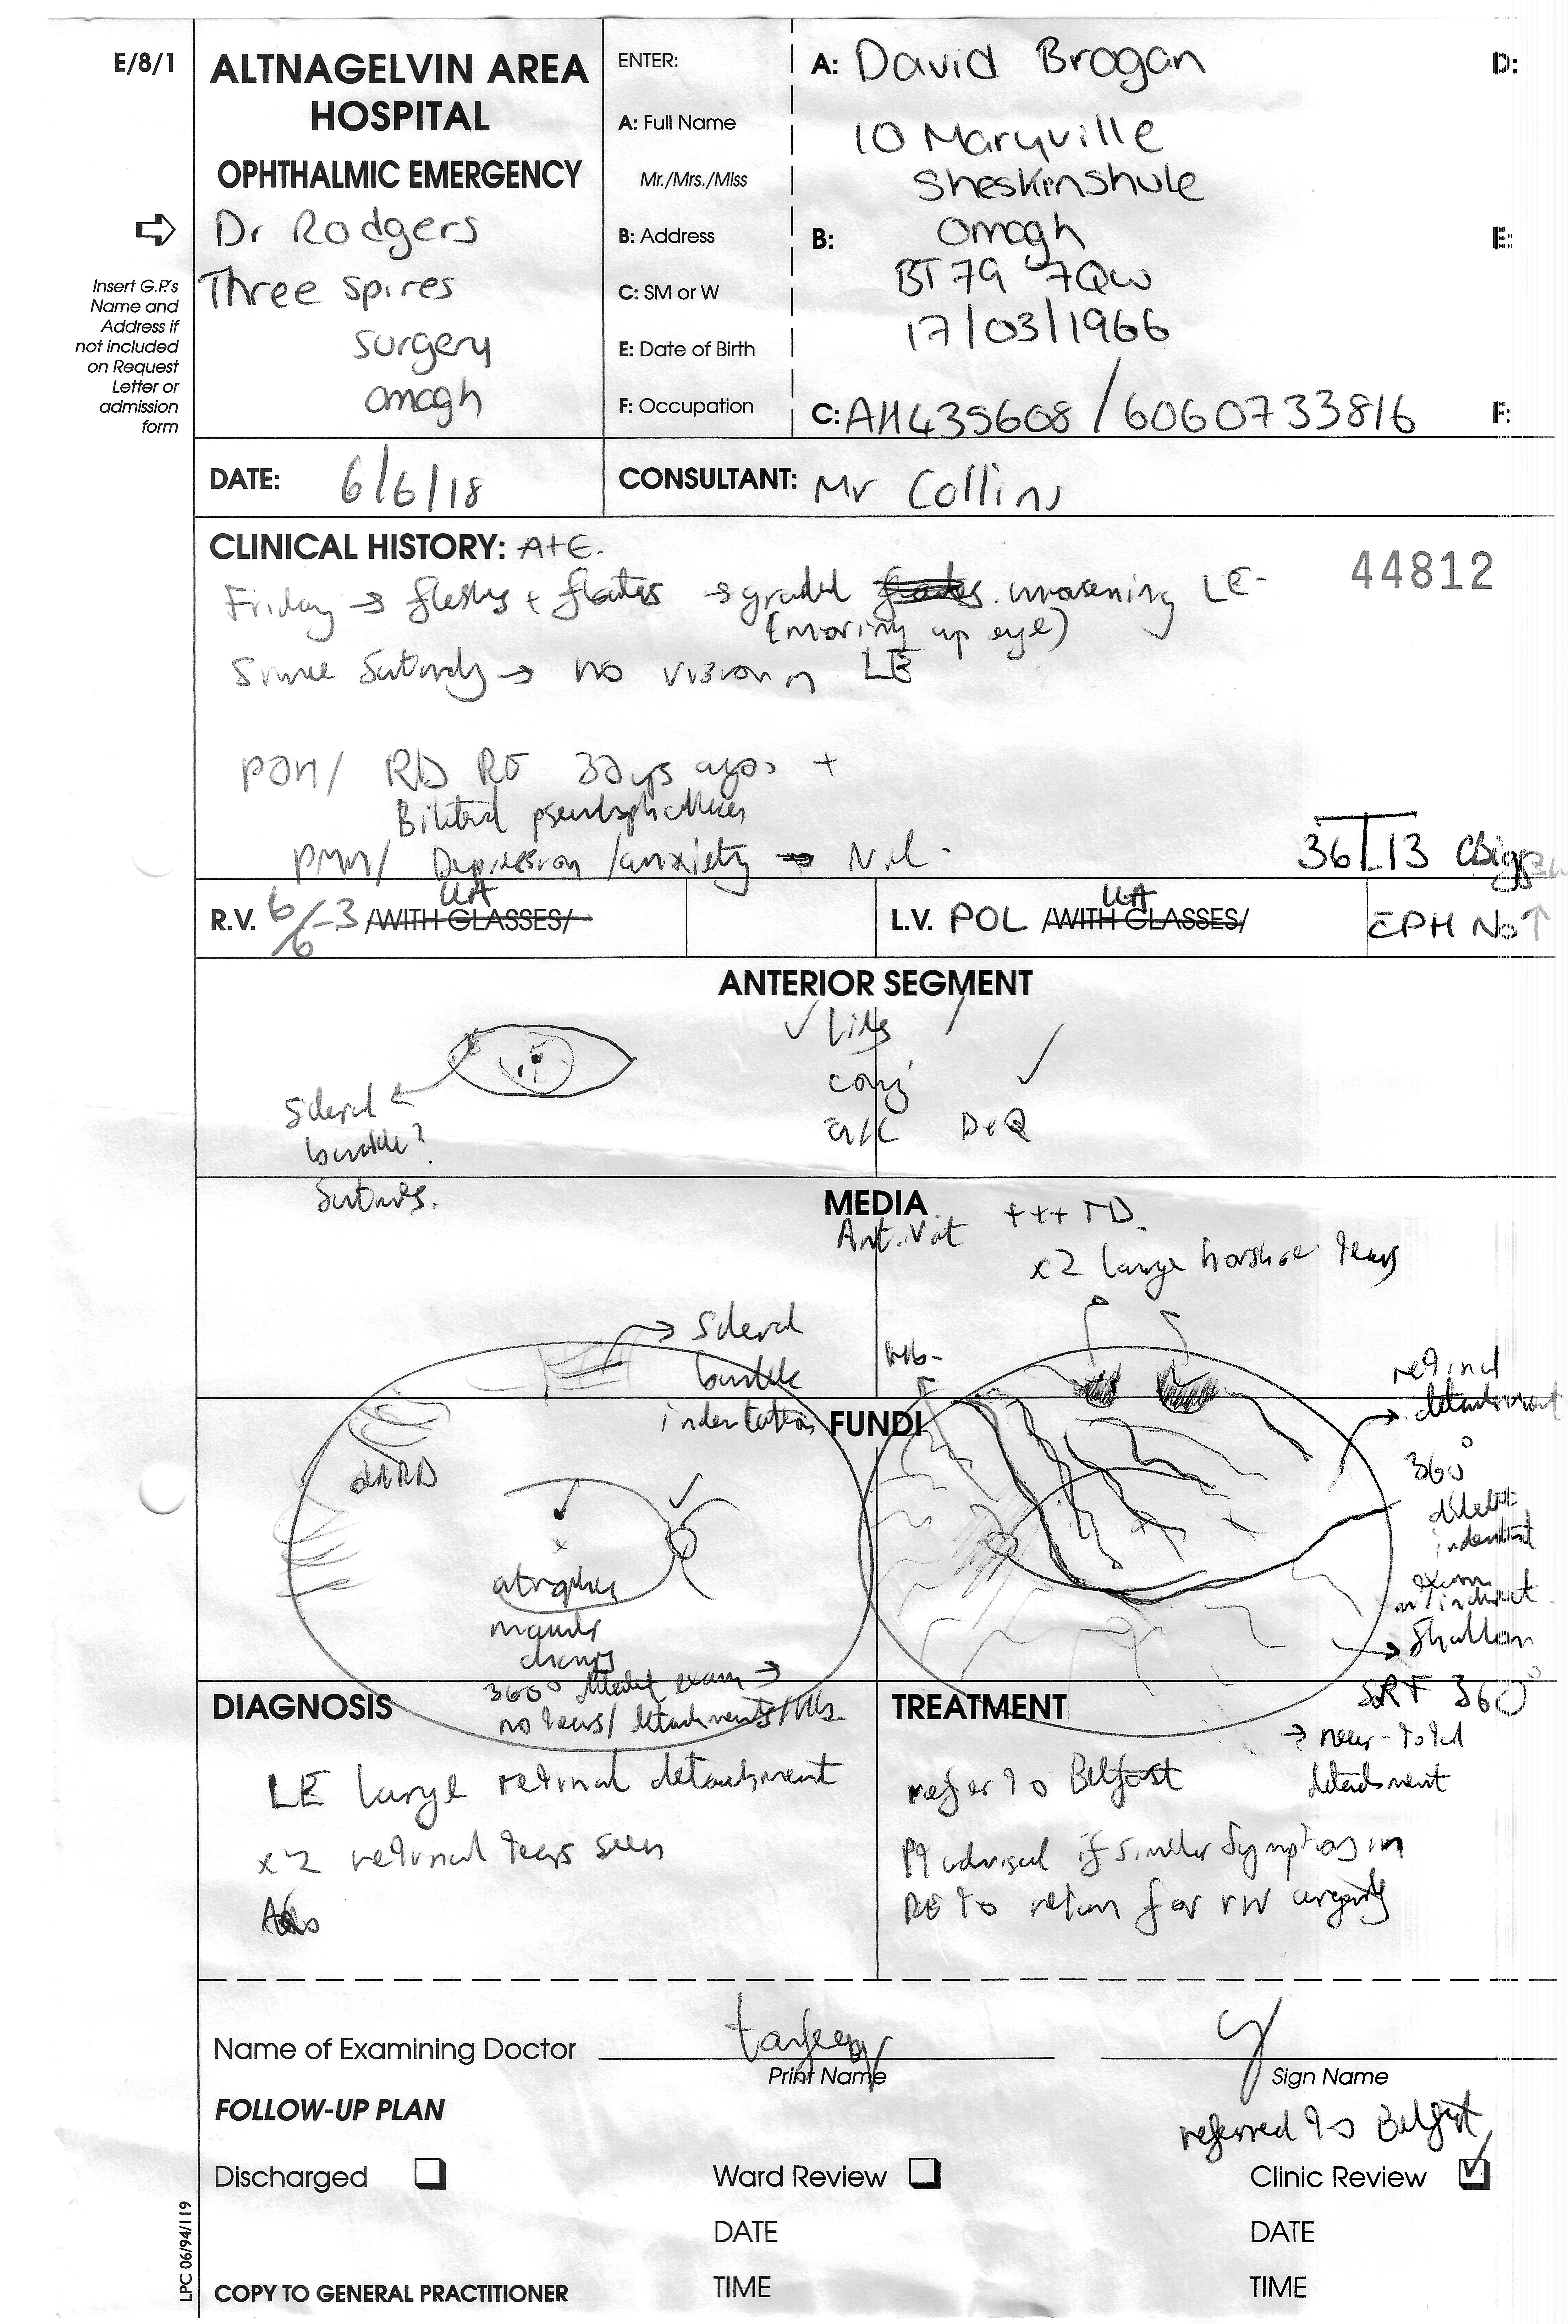 E/8/1
ALTNAGELVIN AREA
HOSPITAL
OPHTHALMIC EMERGENCY
Dr Rodgers
Three Spires
surgery
omagh
Insert G.P.'s
Name and
Address if
not included
on Request
Letter or
admission
form
ENTER:
A: Full Name
Mr./Mrs./Miss
B: Address
C: SM or W
E: Date of Birth
F: Occupation
A: David Brogan
10 Maryville
Sheskinshule
B: Omagh
BT79 7QW
17/03/1966
C: AH435608 / 6060733816
D:
E:
F:
DATE: 6/6/18
CONSULTANT: Mr Collins
CLINICAL HISTORY: A+E.
44812
Friday → flashes + floaters → gradual worsening LE
(moving up eye)
Since Saturday → no vision LE
POH/ RD RE ago +
Bilateral
PMH/ Depression /anxiety Nil
36 T 13
R.V. 6/6 -3 /WITH GLASSES/ UA
L.V. POL /WITH GLASSES/ UA
CPH No ↑
ANTERIOR SEGMENT
✓ Lids
conj ✓
a/c D+Q
Scleral
buckle?
Sutures.
MEDIA
Ant. Vit +++ TD.
x2 large horshoe tears
Scleral
buckle
indentation
FUNDI
retinal
detachment
360°
indented
exam
w/ indirect
Shallow
SRF 360°
→ near-total
detachment
atrophic
macular
changes
360° exam →
no tears/ detachments/
DIAGNOSIS
LE large retinal detachment
x2 retinal tears seen
TREATMENT
refer to Belfast
Pt advised if similar symptoms in
RE to return for r/v urgently
Name of Examining Doctor
Print Name
Sign Name
FOLLOW-UP PLAN
referred to Belfast
Discharged
Ward Review
Clinic Review ✓
DATE
DATE
TIME
TIME
COPY TO GENERAL PRACTITIONER
LPC 06/94/119